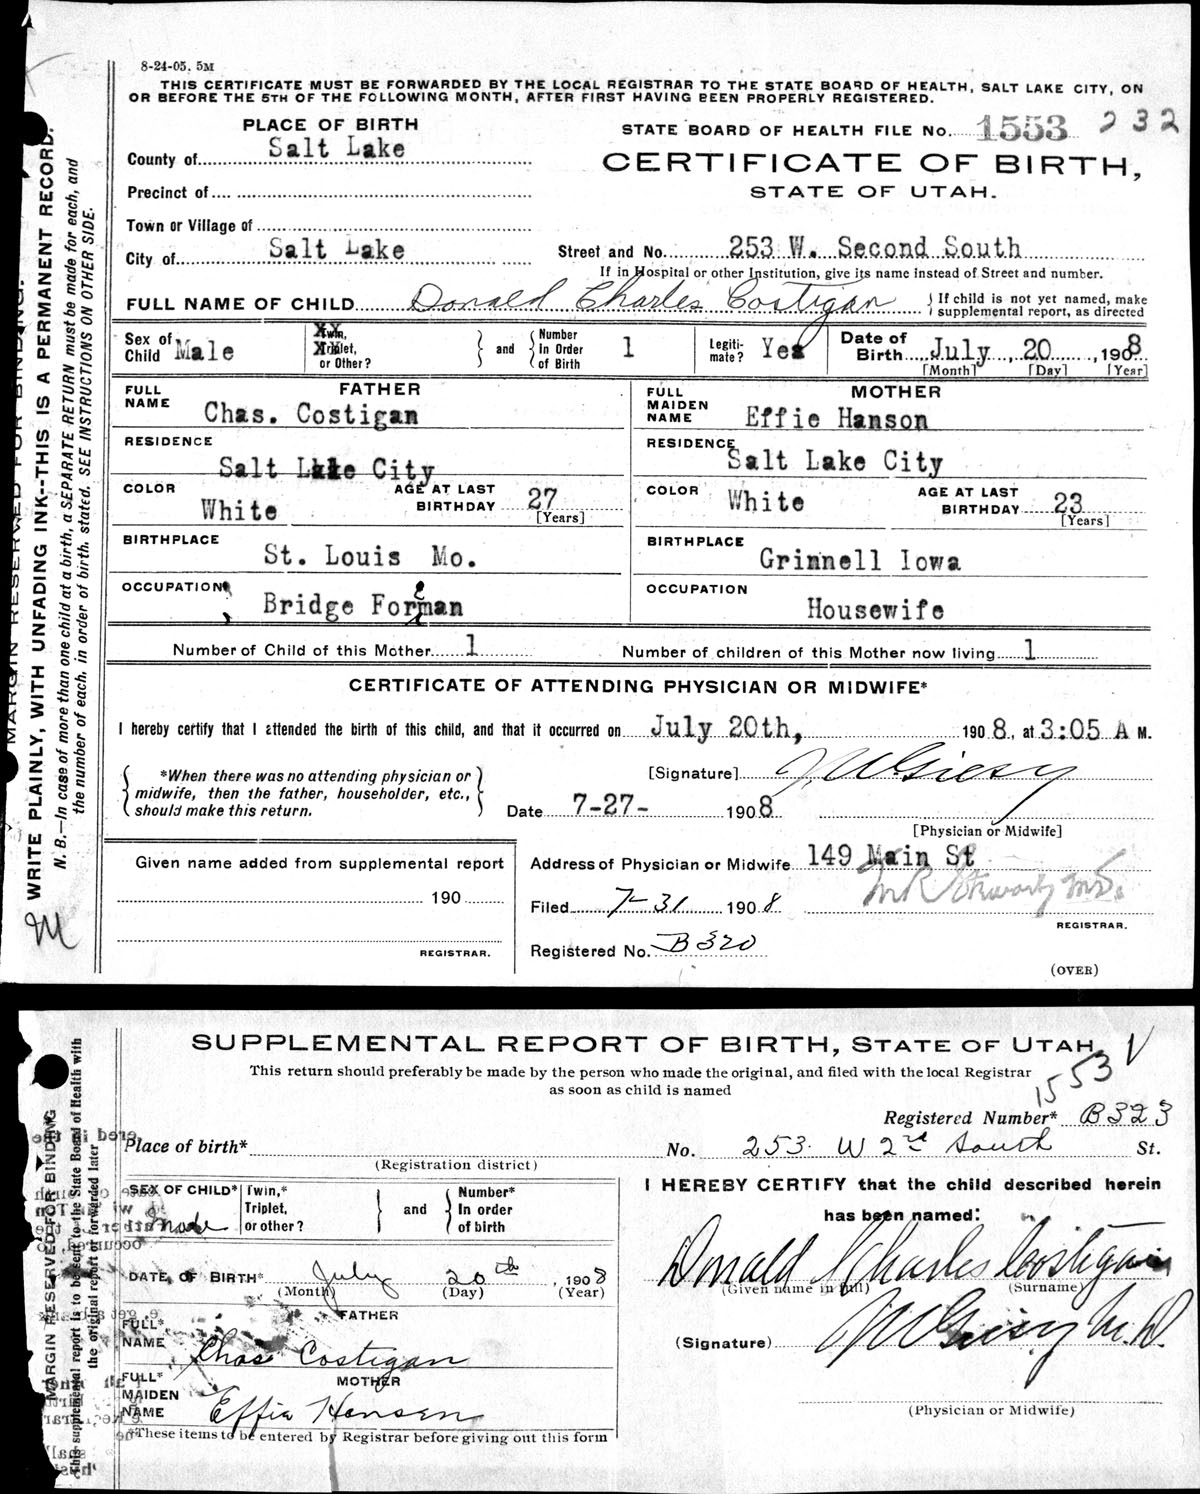 8-24-05. 5M
THIS CERTIFICATE MUST BE FORWARDED BY THE LOCAL REGISTRAR TO THE STATE BOARD OF HEALTH, SALT LAKE CITY, ON
OR BEFORE THE 5TH OF THE FOLLOWING MONTH, AFTER FIRST HAVING BEEN PROPERLY REGISTERED.
MARGIN RESERVED FOR BINDING.
WRITE PLAINLY, WITH UNFADING INK--THIS IS A PERMANENT RECORD.
N. B.—In case of more than one child at a birth, a SEPARATE RETURN must be made for each, and
the number of each, in order of birth, stated. SEE INSTRUCTIONS ON OTHER SIDE.
M
PLACE OF BIRTH
County of Salt Lake
Precinct of
Town or Village of
City of Salt Lake
STATE BOARD OF HEALTH FILE No. 1553 232
CERTIFICATE OF BIRTH,
STATE OF UTAH.
Street and No. 253 W. Second South
If in Hospital or other Institution, give its name instead of Street and number.
FULL NAME OF CHILD Donald Charles Costigan
If child is not yet named, make
supplemental report, as directed
Sex of Child Male
Twin, Triplet, or Other?
and
Number In Order of Birth 1
Legitimate? Yes
Date of Birth July 20, 1908
[Month] [Day] [Year]
FATHER
FULL NAME Chas. Costigan
RESIDENCE Salt Lake City
COLOR White AGE AT LAST BIRTHDAY 27 [Years]
BIRTHPLACE St. Louis Mo.
OCCUPATION Bridge Forman
MOTHER
FULL MAIDEN NAME Effie Hanson
RESIDENCE Salt Lake City
COLOR White AGE AT LAST BIRTHDAY 23 [Years]
BIRTHPLACE Grinnell Iowa
OCCUPATION Housewife
Number of Child of this Mother 1 Number of children of this Mother now living 1
CERTIFICATE OF ATTENDING PHYSICIAN OR MIDWIFE*
I hereby certify that I attended the birth of this child, and that it occurred on July 20th, 1908, at 3:05 A M.
*When there was no attending physician or
midwife, then the father, householder, etc.,
should make this return.
[Signature] J W Giesy
Date 7-27- 1908
[Physician or Midwife]
Given name added from supplemental report
190
REGISTRAR.
Address of Physician or Midwife 149 Main St
Filed 7-31 1908
REGISTRAR.
Registered No. B 320
(OVER)
SUPPLEMENTAL REPORT OF BIRTH, STATE OF UTAH
This return should preferably be made by the person who made the original, and filed with the local Registrar
as soon as child is named
1553 V
Registered Number* B323
MARGIN RESERVED FOR BINDING
This supplemental report is to be sent to the State Board of Health with
the original report or forwarded later
Place of birth* No. 253 W 2nd South St.
(Registration district)
SEX OF CHILD* Male
Twin,* Triplet, or other?
and
Number* In order of birth
DATE OF BIRTH* July 20th, 1908
(Month) (Day) (Year)
FATHER
FULL* NAME Chas Costigan
MOTHER
FULL* MAIDEN NAME Effie Hansen
*These items to be entered by Registrar before giving out this form
I HEREBY CERTIFY that the child described herein
has been named:
Donald Charles Costigan
(Given name in full) (Surname)
(Signature) J W Giesy M.D.
(Physician or Midwife)